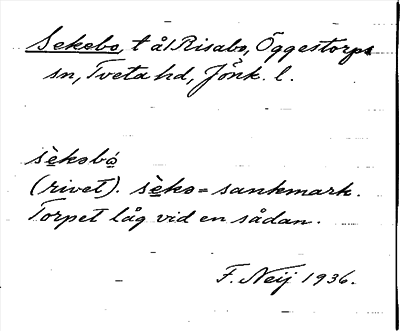 Sekebo, t ål Risabo, Öggestorps
sn, Tveta hd, Jönk. l.
sèkobó
(rivet). sèko = sankmark.
Torpet låg vid en sådan.
F. Neij 1936.